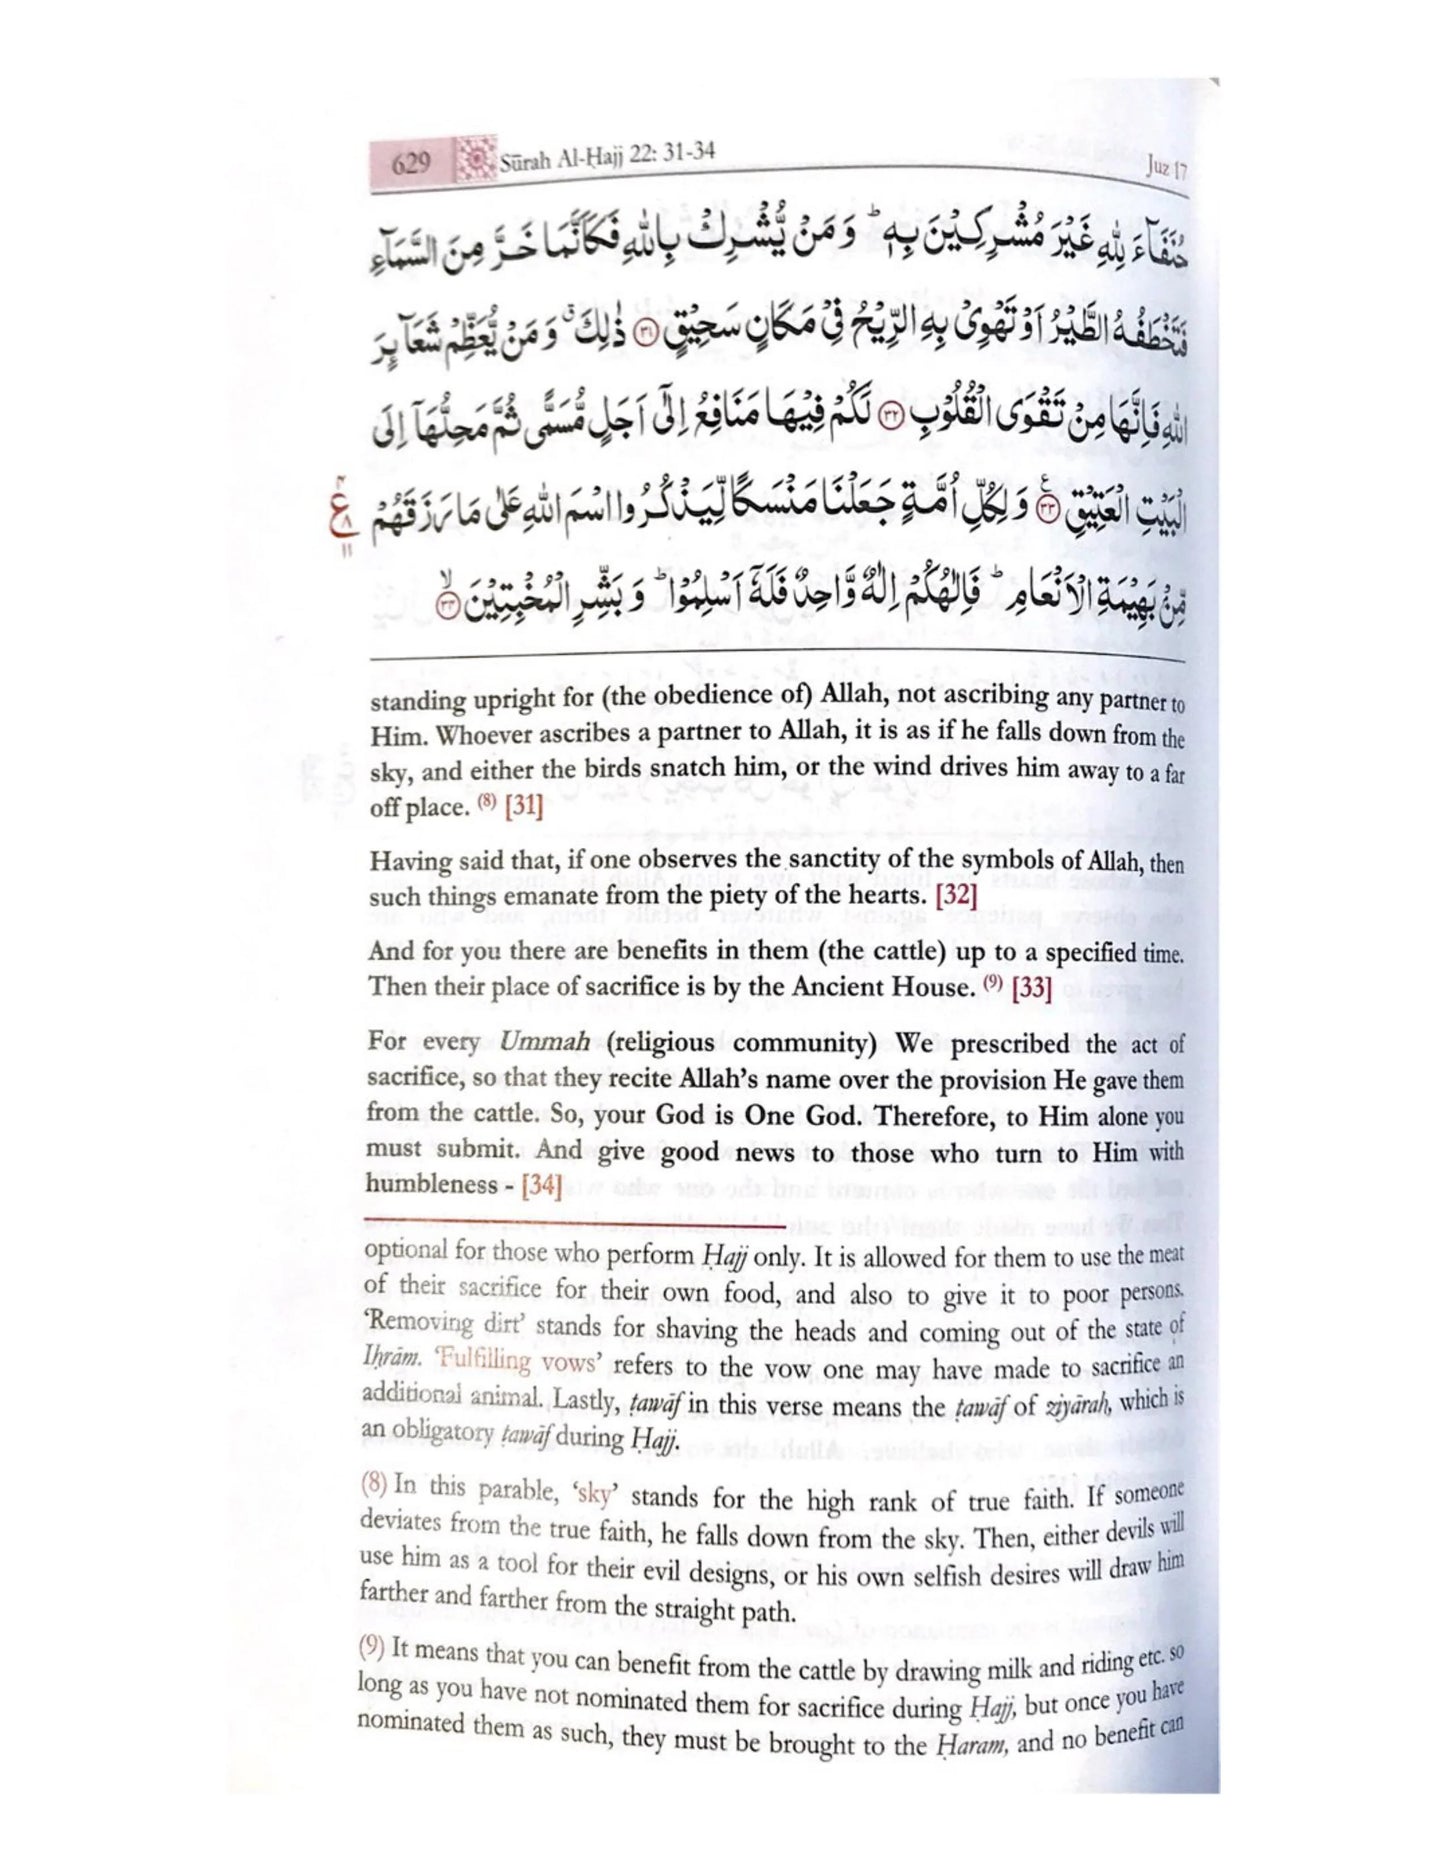 629 Sūrah Al-Ḥajj 22: 31-34 Juz 17
حُنَفَآءَ لِلّٰهِ غَيْرَ مُشْرِكِيْنَ بِهٖ ؕ وَ مَنْ يُّشْرِكْ بِاللّٰهِ فَكَاَنَّمَا خَرَّ مِنَ السَّمَآءِ
فَتَخْطَفُهُ الطَّيْرُ اَوْ تَهْوِيْ بِهِ الرِّيْحُ فِيْ مَكَانٍ سَحِيْقٍ ﴿۳۱﴾ ذٰلِكَ ۗ وَ مَنْ يُّعَظِّمْ شَعَآىِٕرَ
اللّٰهِ فَاِنَّهَا مِنْ تَقْوَى الْقُلُوْبِ ﴿۳۲﴾ لَكُمْ فِيْهَا مَنَافِعُ اِلٰۤى اَجَلٍ مُّسَمًّى ثُمَّ مَحِلُّهَاۤ اِلَى
الْبَيْتِ الْعَتِيْقِ ﴿۳۳﴾ وَ لِكُلِّ اُمَّةٍ جَعَلْنَا مَنْسَكًا لِّيَذْكُرُوا اسْمَ اللّٰهِ عَلٰى مَا رَزَقَهُمْ
مِّنْۢ بَهِيْمَةِ الْاَنْعَامِ ؕ فَاِلٰهُكُمْ اِلٰهٌ وَّاحِدٌ فَلَهٗۤ اَسْلِمُوْا ؕ وَ بَشِّرِ الْمُخْبِتِيْنَ ﴿۳۴﴾
standing upright for (the obedience of) Allah, not ascribing any partner to
Him. Whoever ascribes a partner to Allah, it is as if he falls down from the
sky, and either the birds snatch him, or the wind drives him away to a far
off place. (8) [31]
Having said that, if one observes the sanctity of the symbols of Allah, then
such things emanate from the piety of the hearts. [32]
And for you there are benefits in them (the cattle) up to a specified time.
Then their place of sacrifice is by the Ancient House. (9) [33]
For every Ummah (religious community) We prescribed the act of
sacrifice, so that they recite Allah's name over the provision He gave them
from the cattle. So, your God is One God. Therefore, to Him alone you
must submit. And give good news to those who turn to Him with
humbleness - [34]
optional for those who perform Ḥajj only. It is allowed for them to use the meat
of their sacrifice for their own food, and also to give it to poor persons.
'Removing dirt' stands for shaving the heads and coming out of the state of
Iḥrām. 'Fulfilling vows' refers to the vow one may have made to sacrifice an
additional animal. Lastly, ṭawāf in this verse means the ṭawāf of ziyārah, which is
an obligatory ṭawāf during Ḥajj.
(8) In this parable, 'sky' stands for the high rank of true faith. If someone
deviates from the true faith, he falls down from the sky. Then, either devils will
use him as a tool for their evil designs, or his own selfish desires will draw him
farther and farther from the straight path.
(9) It means that you can benefit from the cattle by drawing milk and riding etc. so
long as you have not nominated them for sacrifice during Ḥajj, but once you have
nominated them as such, they must be brought to the Ḥaram, and no benefit can